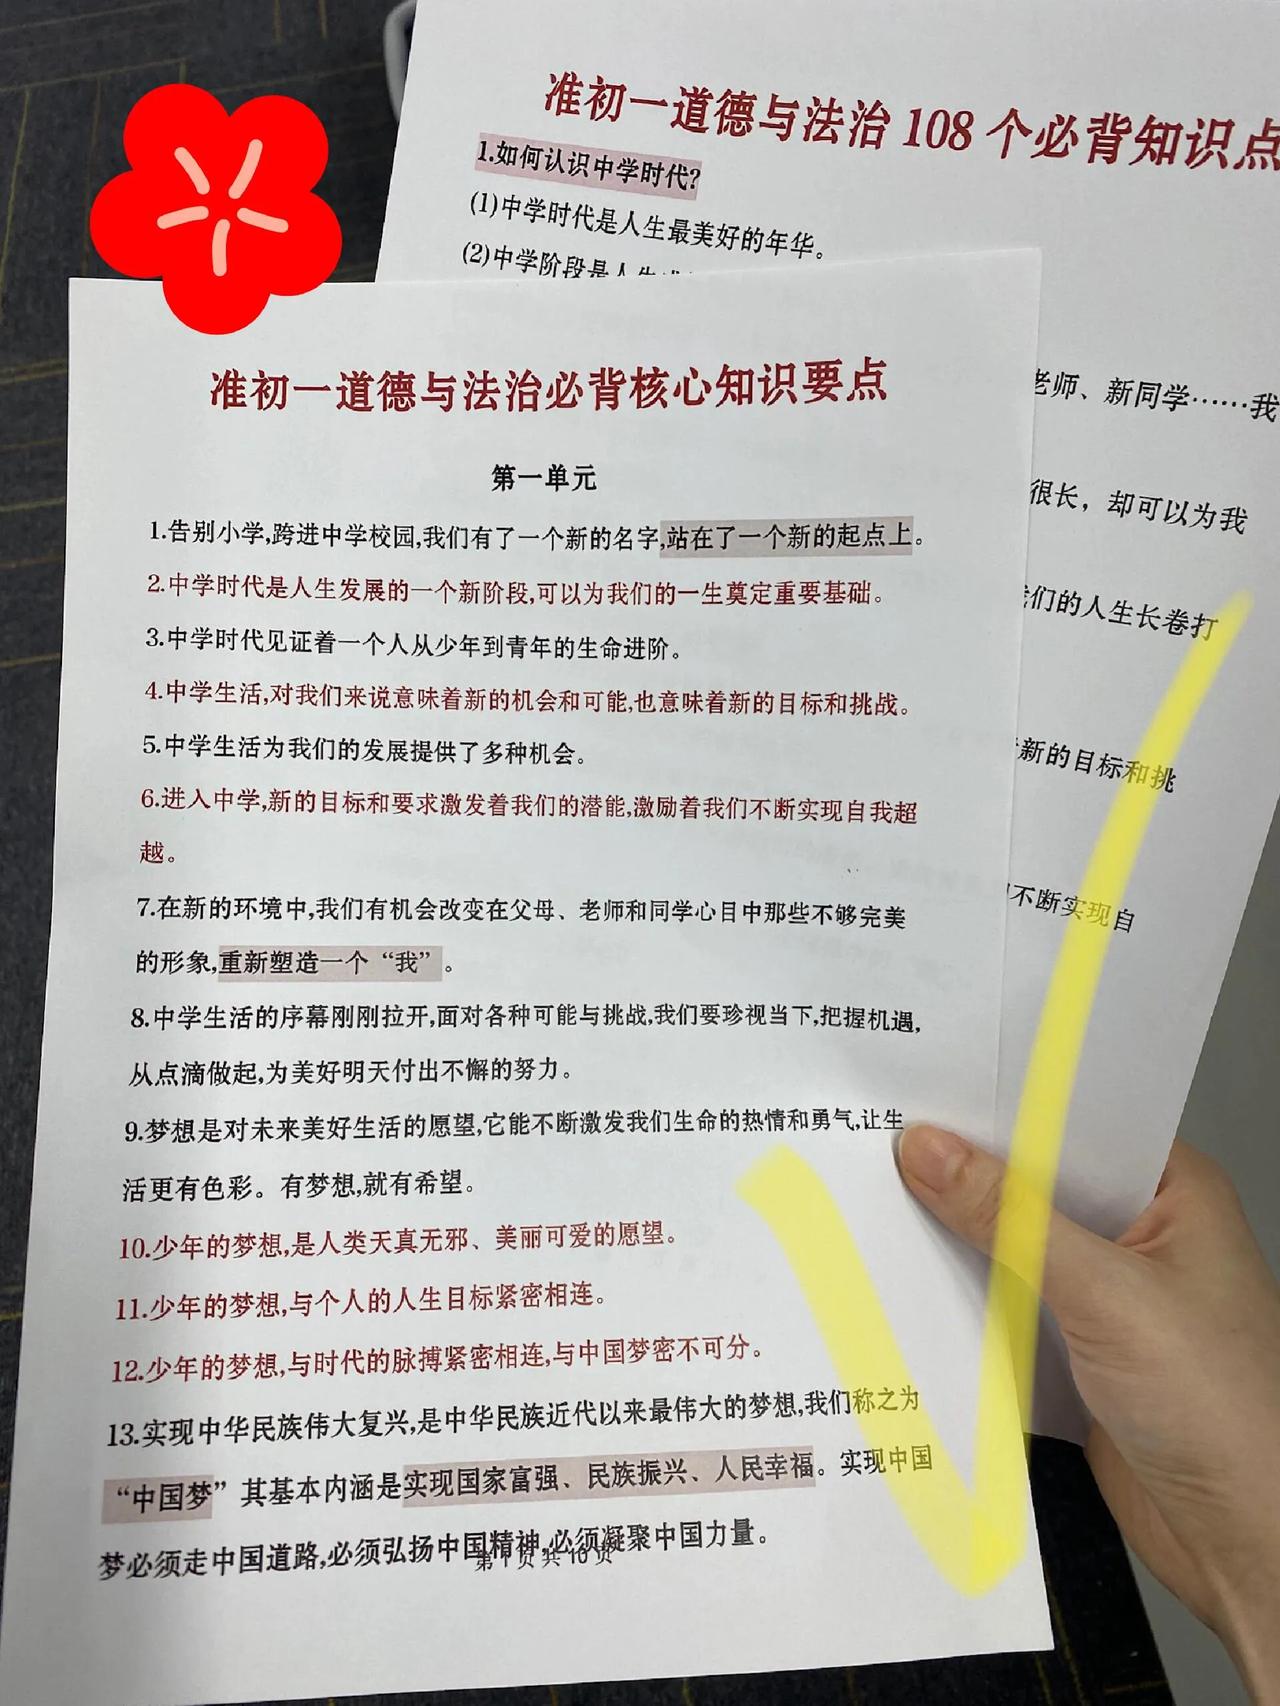 准初一道德与法治108个必背知识点
1.如何认识中学时代?
(1)中学时代是人生最美好的年华。
(2)中学阶段是人生
老师、新同学……我
很长，却可以为我
我们的人生长卷打
新的目标和挑
不断实现自
准初一道德与法治必背核心知识要点
第一单元
1.告别小学,跨进中学校园,我们有了一个新的名字,站在了一个新的起点上。
2.中学时代是人生发展的一个新阶段,可以为我们的一生奠定重要基础。
3.中学时代见证着一个人从少年到青年的生命进阶。
4.中学生活,对我们来说意味着新的机会和可能,也意味着新的目标和挑战。
5.中学生活为我们的发展提供了多种机会。
6.进入中学,新的目标和要求激发着我们的潜能,激励着我们不断实现自我超
越。
7.在新的环境中,我们有机会改变在父母、老师和同学心目中那些不够完美
的形象,重新塑造一个“我”。
8.中学生活的序幕刚刚拉开,面对各种可能与挑战,我们要珍视当下,把握机遇,
从点滴做起,为美好明天付出不懈的努力。
9.梦想是对未来美好生活的愿望,它能不断激发我们生命的热情和勇气,让生
活更有色彩。有梦想,就有希望。
10.少年的梦想,是人类天真无邪、美丽可爱的愿望。
11.少年的梦想,与个人的人生目标紧密相连。
12.少年的梦想,与时代的脉搏紧密相连,与中国梦密不可分。
13.实现中华民族伟大复兴,是中华民族近代以来最伟大的梦想,我们称之为
“中国梦”其基本内涵是实现国家富强、民族振兴、人民幸福。实现中国
梦必须走中国道路,必须弘扬中国精神,必须凝聚中国力量。
第1页共10页